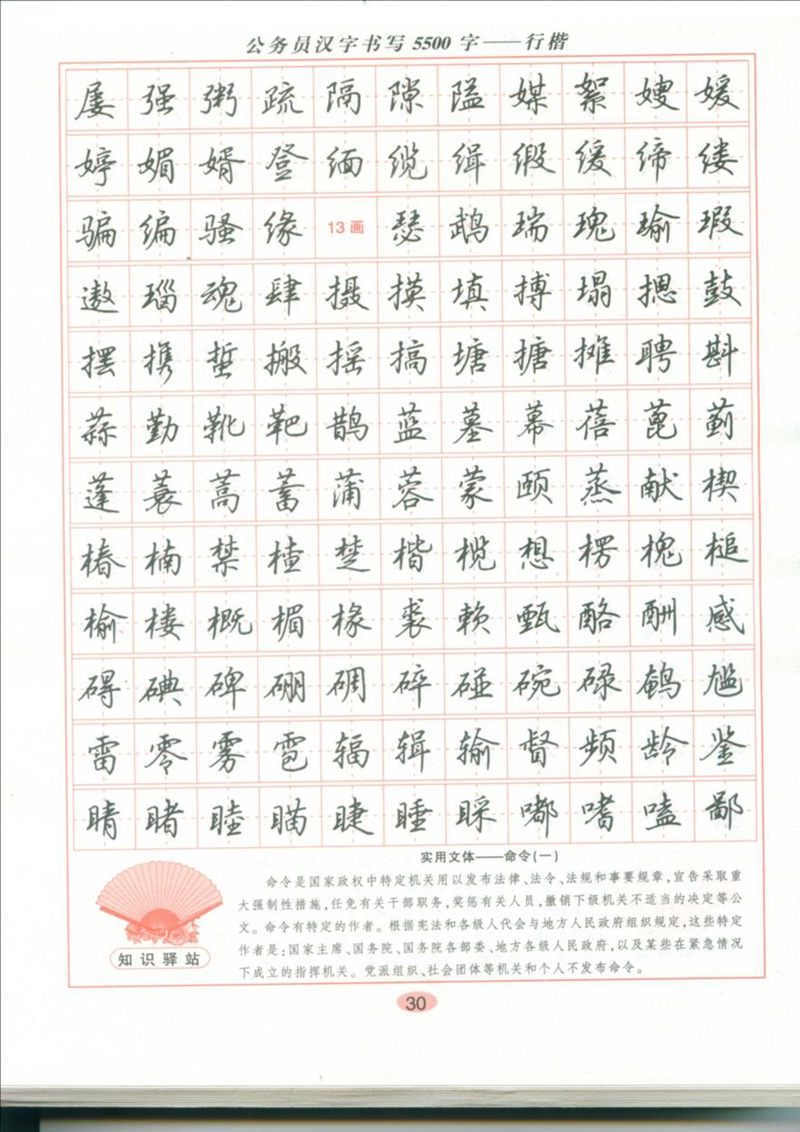 公务员汉字书写5500字——行楷
屡强粥疏隔隙隘媒絮嫂媛
婷媚婿登缅缆缉缎缓缔缕
骗编骚缘13画瑟鹉瑞瑰瑜瑕
遨瑙魂肆摄摸填搏塌摁鼓
摆携蜇搬摇搞塘搪摊聘斟
蒜勤靴靶鹊蓝墓幕蓓蓖蓟
蓬蓑蒿蓄蒲蓉蒙颐蒸献楔
椿楠禁楂楚楷榄想楞槐槌
榆楼概楣椽裘赖甄酪酬感
碍碘碑硼碉碎碰碗碌鹌尴
雷零雾雹辐辑输督频龄鉴
睛睹睦瞄睫睡睬嘟嗜嗑鄙
实用文体——命令(一)
命令是国家政权中特定机关用以发布法律、法令、法规和事要规章，宣告采取重
大强制性措施，任免有关干部职务，奖惩有关人员，撤销下级机关不适当的决定等公
文。命令有特定的作者。根据宪法和各级人代会与地方人民政府组织规定，这些特定
作者是：国家主席、国务院、国务院各部委、地方各级人民政府，以及某些在紧急情况
下成立的指挥机关。党派组织、社会团体等机关和个人不发布命令。
知识驿站
30